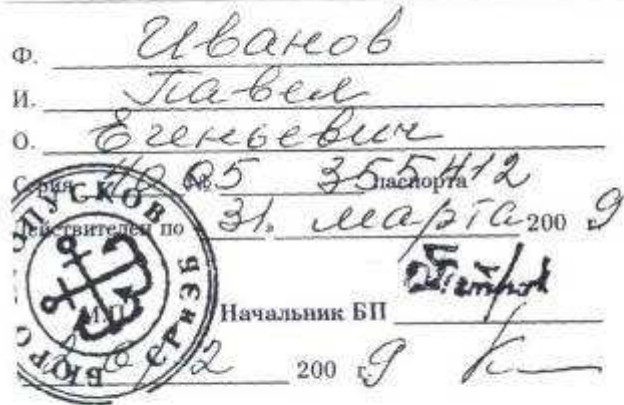 Ф. Иванов
И. Павел
О. Егеньевич
Серия 40 05 № 355412 паспорта
Действителен по 31. марта 2009
БЮРО ПРОПУСКОВ
М.П.
Начальник БП
2009 г.